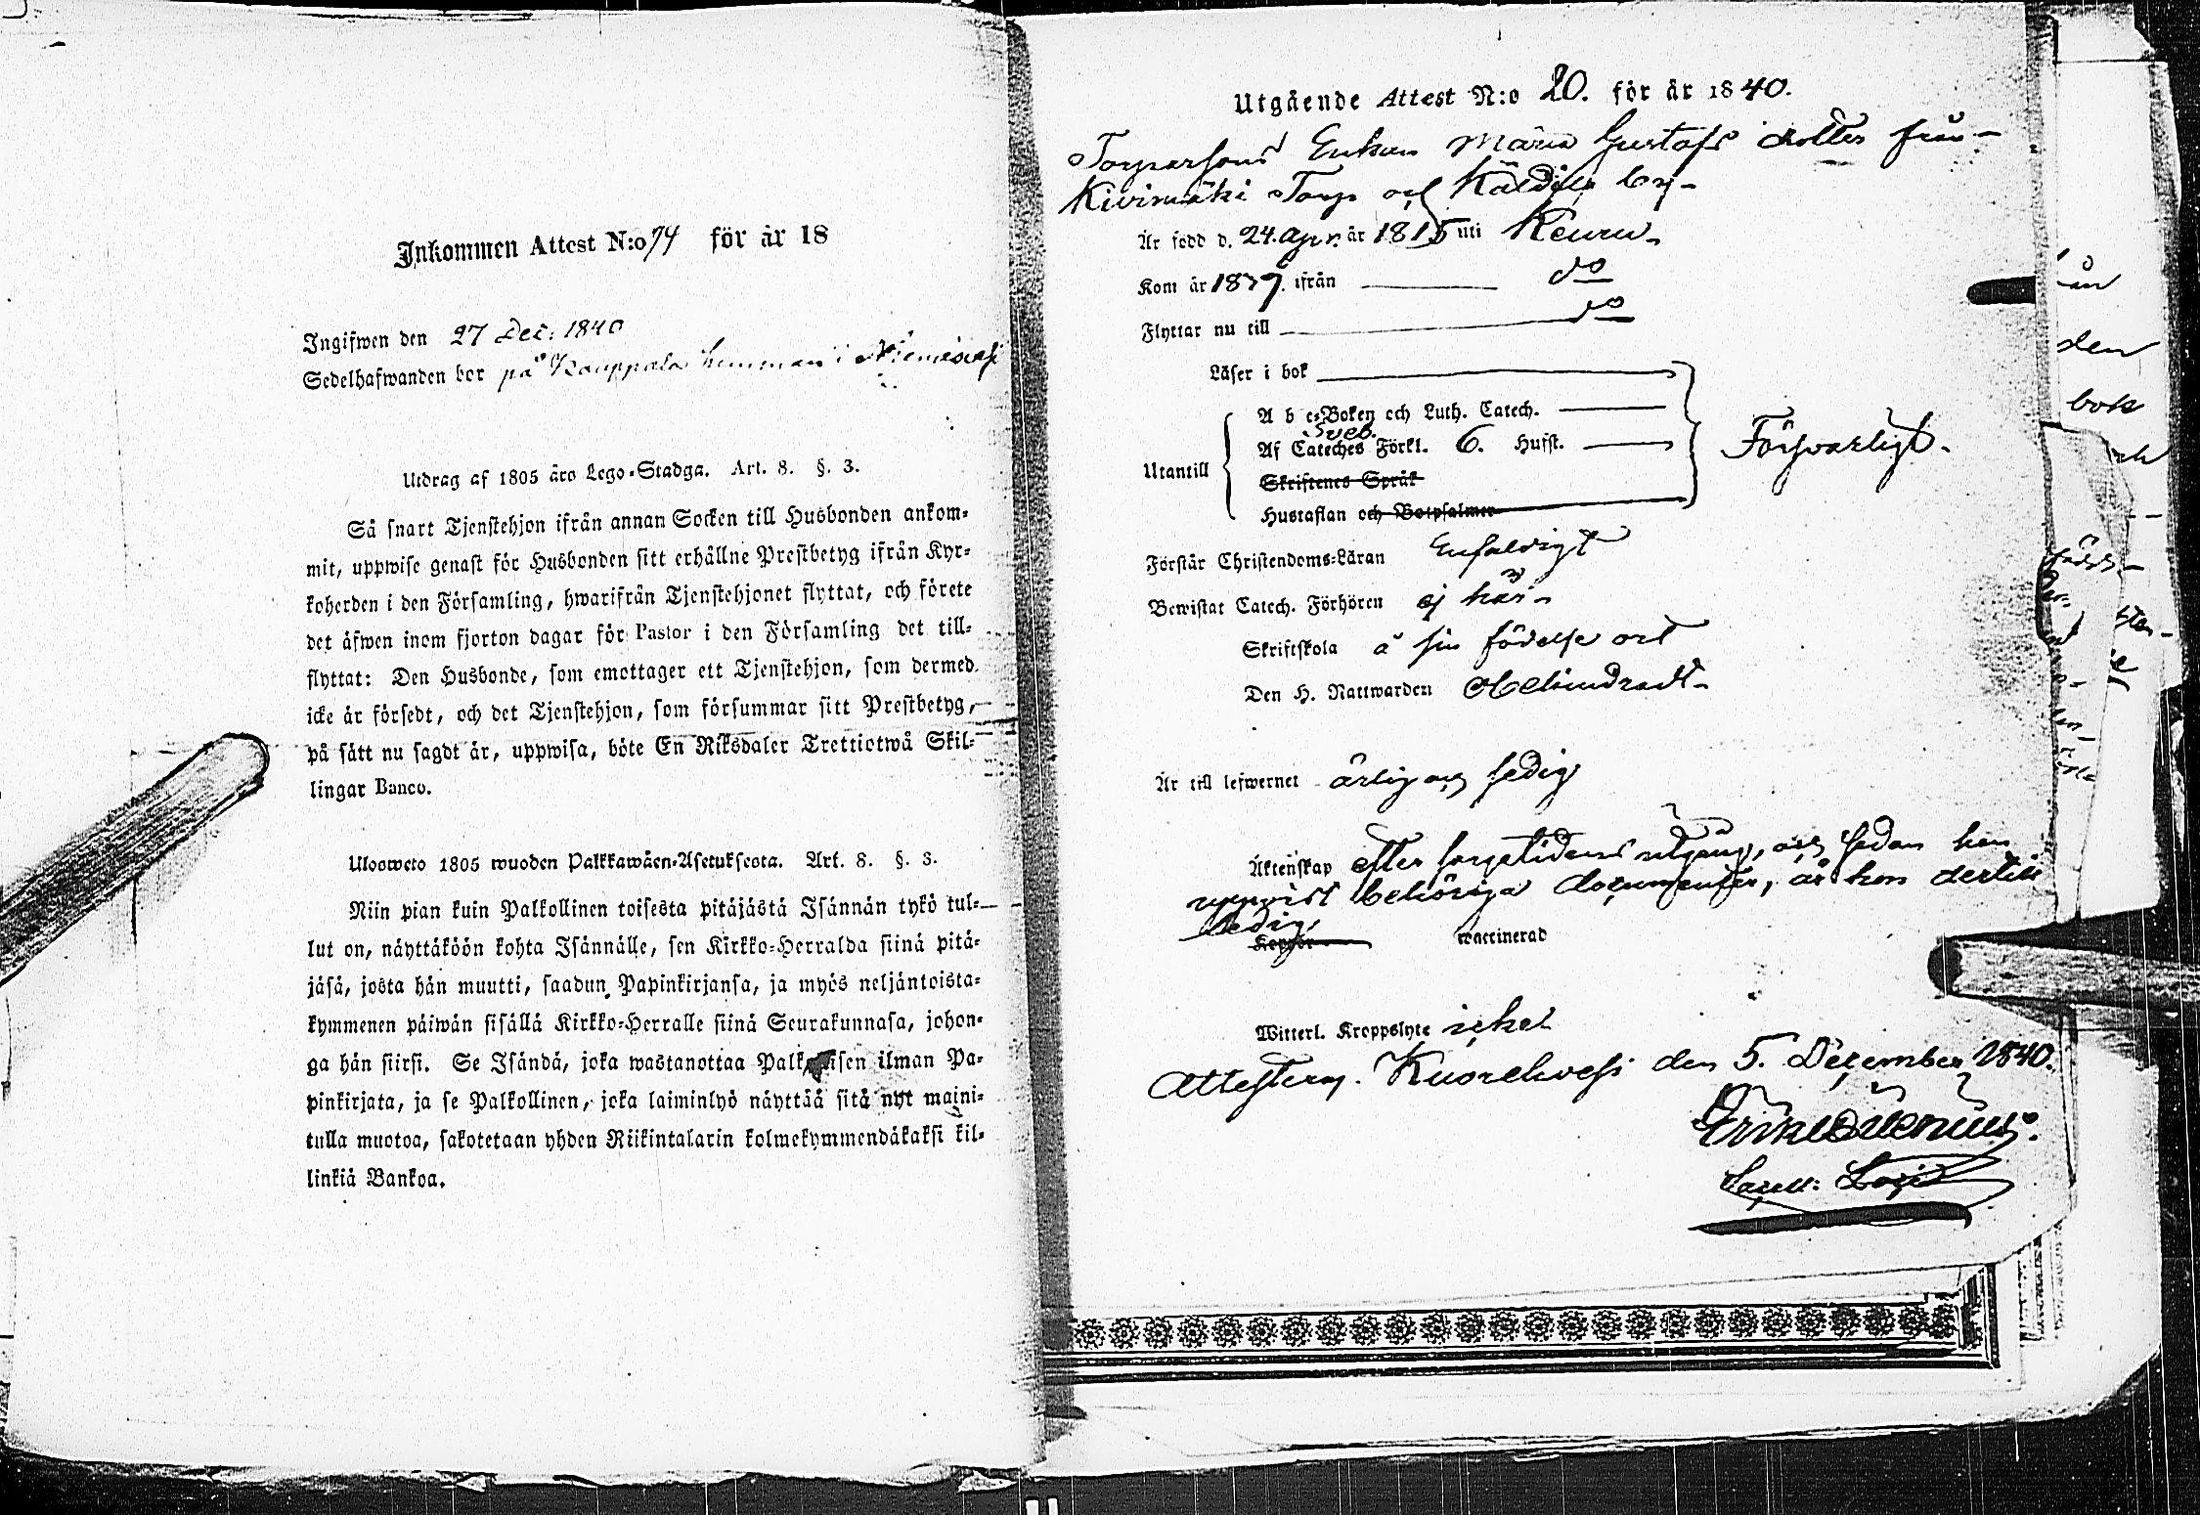 Inkommen Attest N:o 74 för år 18
Ingifwen den 27 Dec: 1840
Sedelhafwanden bor på Kauppala hemman i
Utdrag af 1805 års Lego-Stadga. Art. 8. §. 3.
Så snart Tjenstehjon ifrån annan Socken till Husbonden ankom-
mit, uppwise genast för Husbonden sitt erhållne Prestbetyg ifrån Kyr-
koherden i den Församling, hwarifrån Tjenstehjonet flyttat, och förete
det äfwen inom fjorton dagar för Pastor i den Församling det till-
flyttat: Den Husbonde, som emottager ett Tjenstehjon, som dermed
icke är försedt, och det Tjenstehjon, som försummar sitt Prestbetyg,
på sätt nu sagdt är, uppwisa, böte En Riksdaler Trettiotwå Skil-
lingar Banco.
Ulosweto 1805 wuoden Palkkawäen-Asetuksesta. Art. 8. §. 3.
Niin pian kuin Palkollinen toisesta pitäjästä Isännän tykö tul-
lut on, näyttäköön kohta Isännälle, sen Kirkko-Herralda siinä pitä-
jäsä, josta hän muutti, saadun Papinkirjansa, ja myös neljäntoista-
kymmenen päiwän sisällä Kirkko-Herralle siinä Seurakunnasa, johon-
ga hän siirsi. Se Isändä, joka wastanottaa ilman Pa-
pinkirjata, ja se Palkollinen, joka laiminlyö näyttää sitä nyt maini-
tulla muotoa, sakotetaan yhden Riikintalarin kolmekymmendäkaksi kil-
linkiä Bankoa.
Utgående Attest N:o 20. för år 1840.
Torparsons Enkan Maria Gustafs dotter från
Kivimäki Torp och by
Är född d. 24. Apr. år 1815 uti Keuru
Kom år 1837. ifrån do
Flyttar nu till do
Läser i bok
A b c-Boken och Luth. Catech.
Sveb.
Af Cateches Förkl. 6. Hufst.
Försvarligt.
Utantill
Skriftenes Språk
Hustaflan och Botpsalmer
Förstår Christendoms-Läran Enfaldigt
Bewistat Catech. Förhören ej här
Skriftskola å sin födelse ort
Den H. Nattwarden Obehindradt
Är till lefwernet ärlig och sedig
Äktenskap efter sorgetidens utgång, och sedan hon
uppvist behöriga documenter, är hon dertill
ledig,
Koppor waccinerad
Witterl. Kroppslyte icke
Attesterar. Kuorehvesi den 5. December 1840.
den
bok